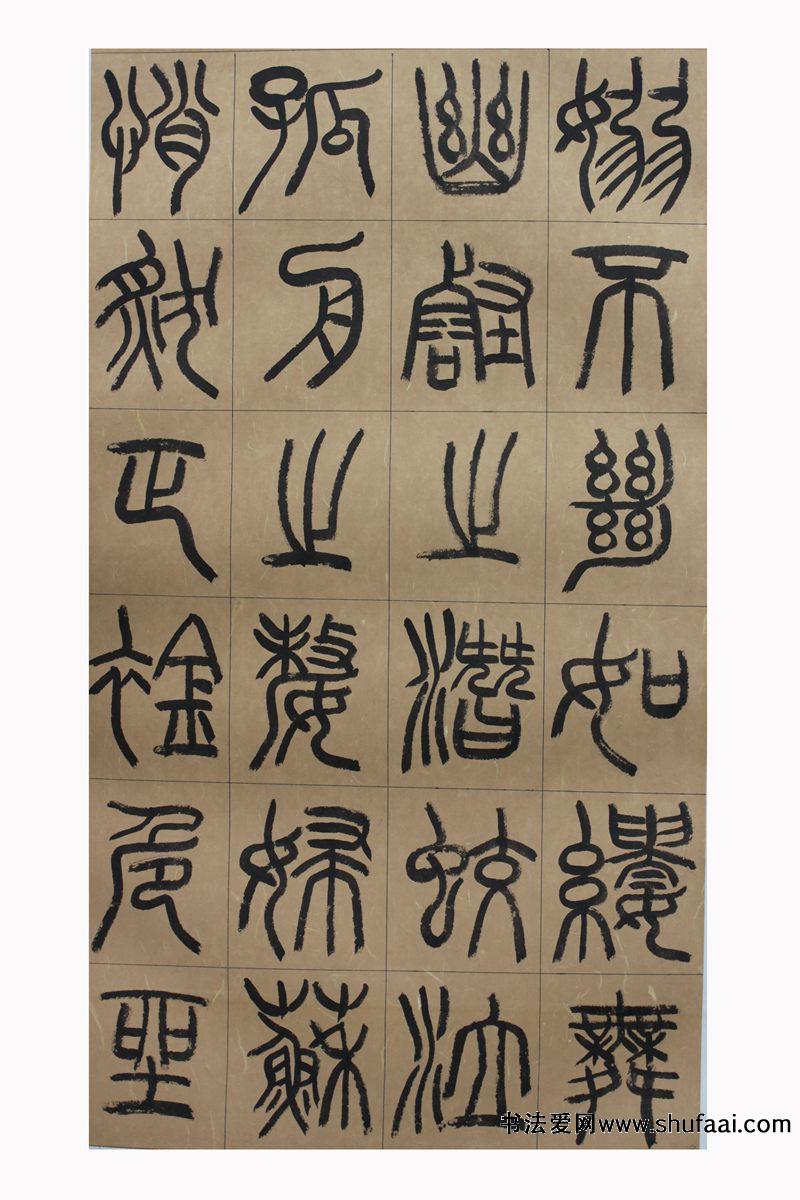 嫋不絕如縷舞
幽壑之潛蛟泣
孤舟之嫠婦蘇
悄然正襟危坐
书法爱网www.shufaai.com